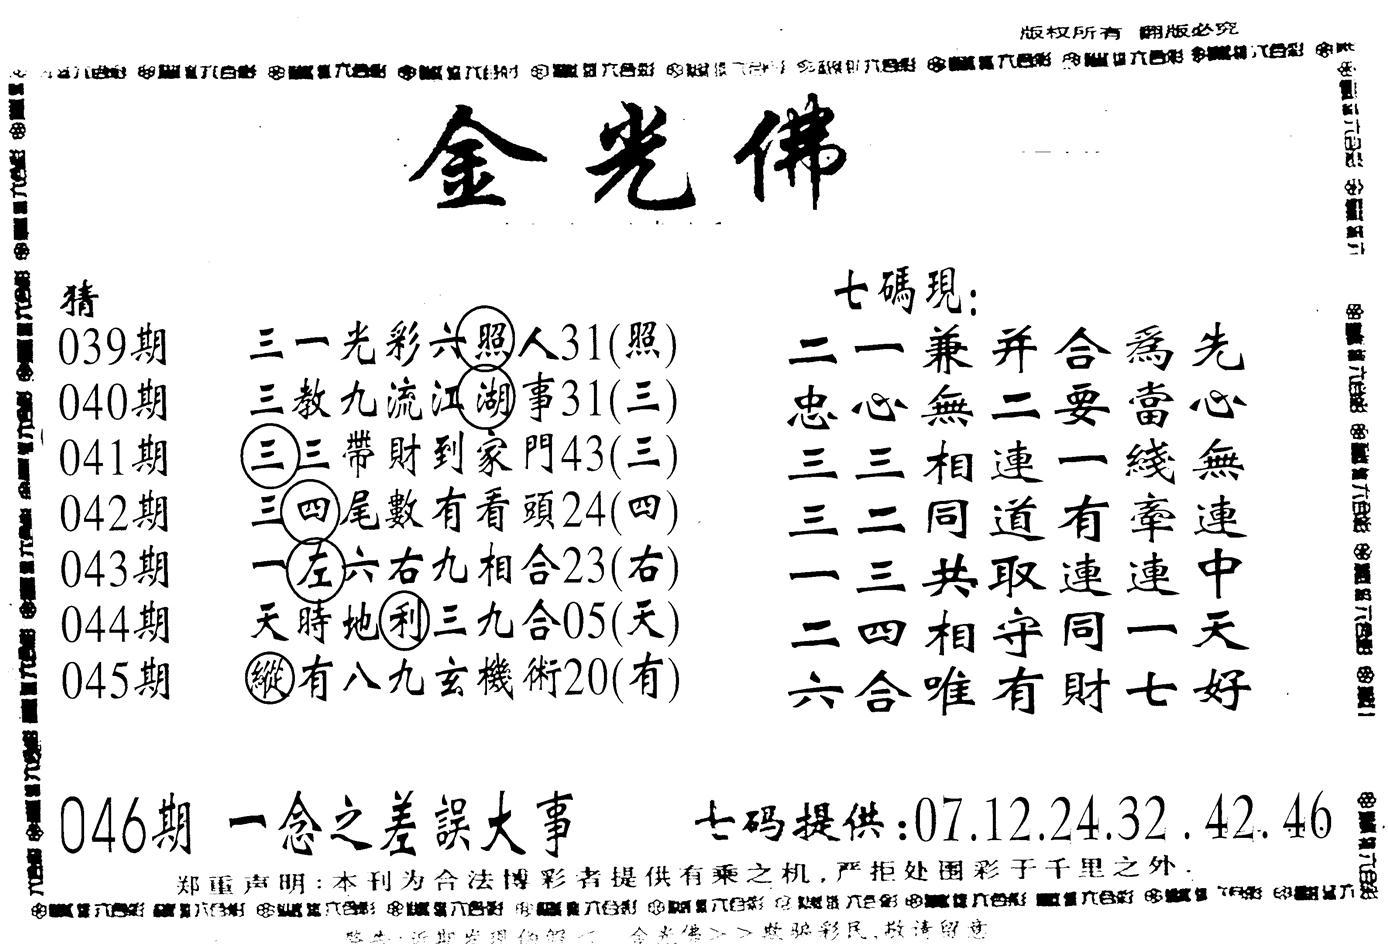 版权所有 翻版必究
金光佛
猜
039期 三一光彩六照人31(照)
040期 三教九流江湖事31(三)
041期 三三帶財到家門43(三)
042期 三四尾數有看頭24(四)
043期 一左六右九相合23(右)
044期 天時地利三九合05(天)
045期 縱有八九玄機術20(有)
七碼現:
二一兼并合爲先
忠心無二要當心
三三相連一綫無
三二同道有牽連
一三共取連連中
二四相守同一天
六合唯有財七好
046期 一念之差誤大事 七码提供:07.12.24.32.42.46
郑重声明:本刊为合法博彩者提供有乘之机,严拒处图彩于千里之外.
金光佛 欺骗彩民,敬请留意